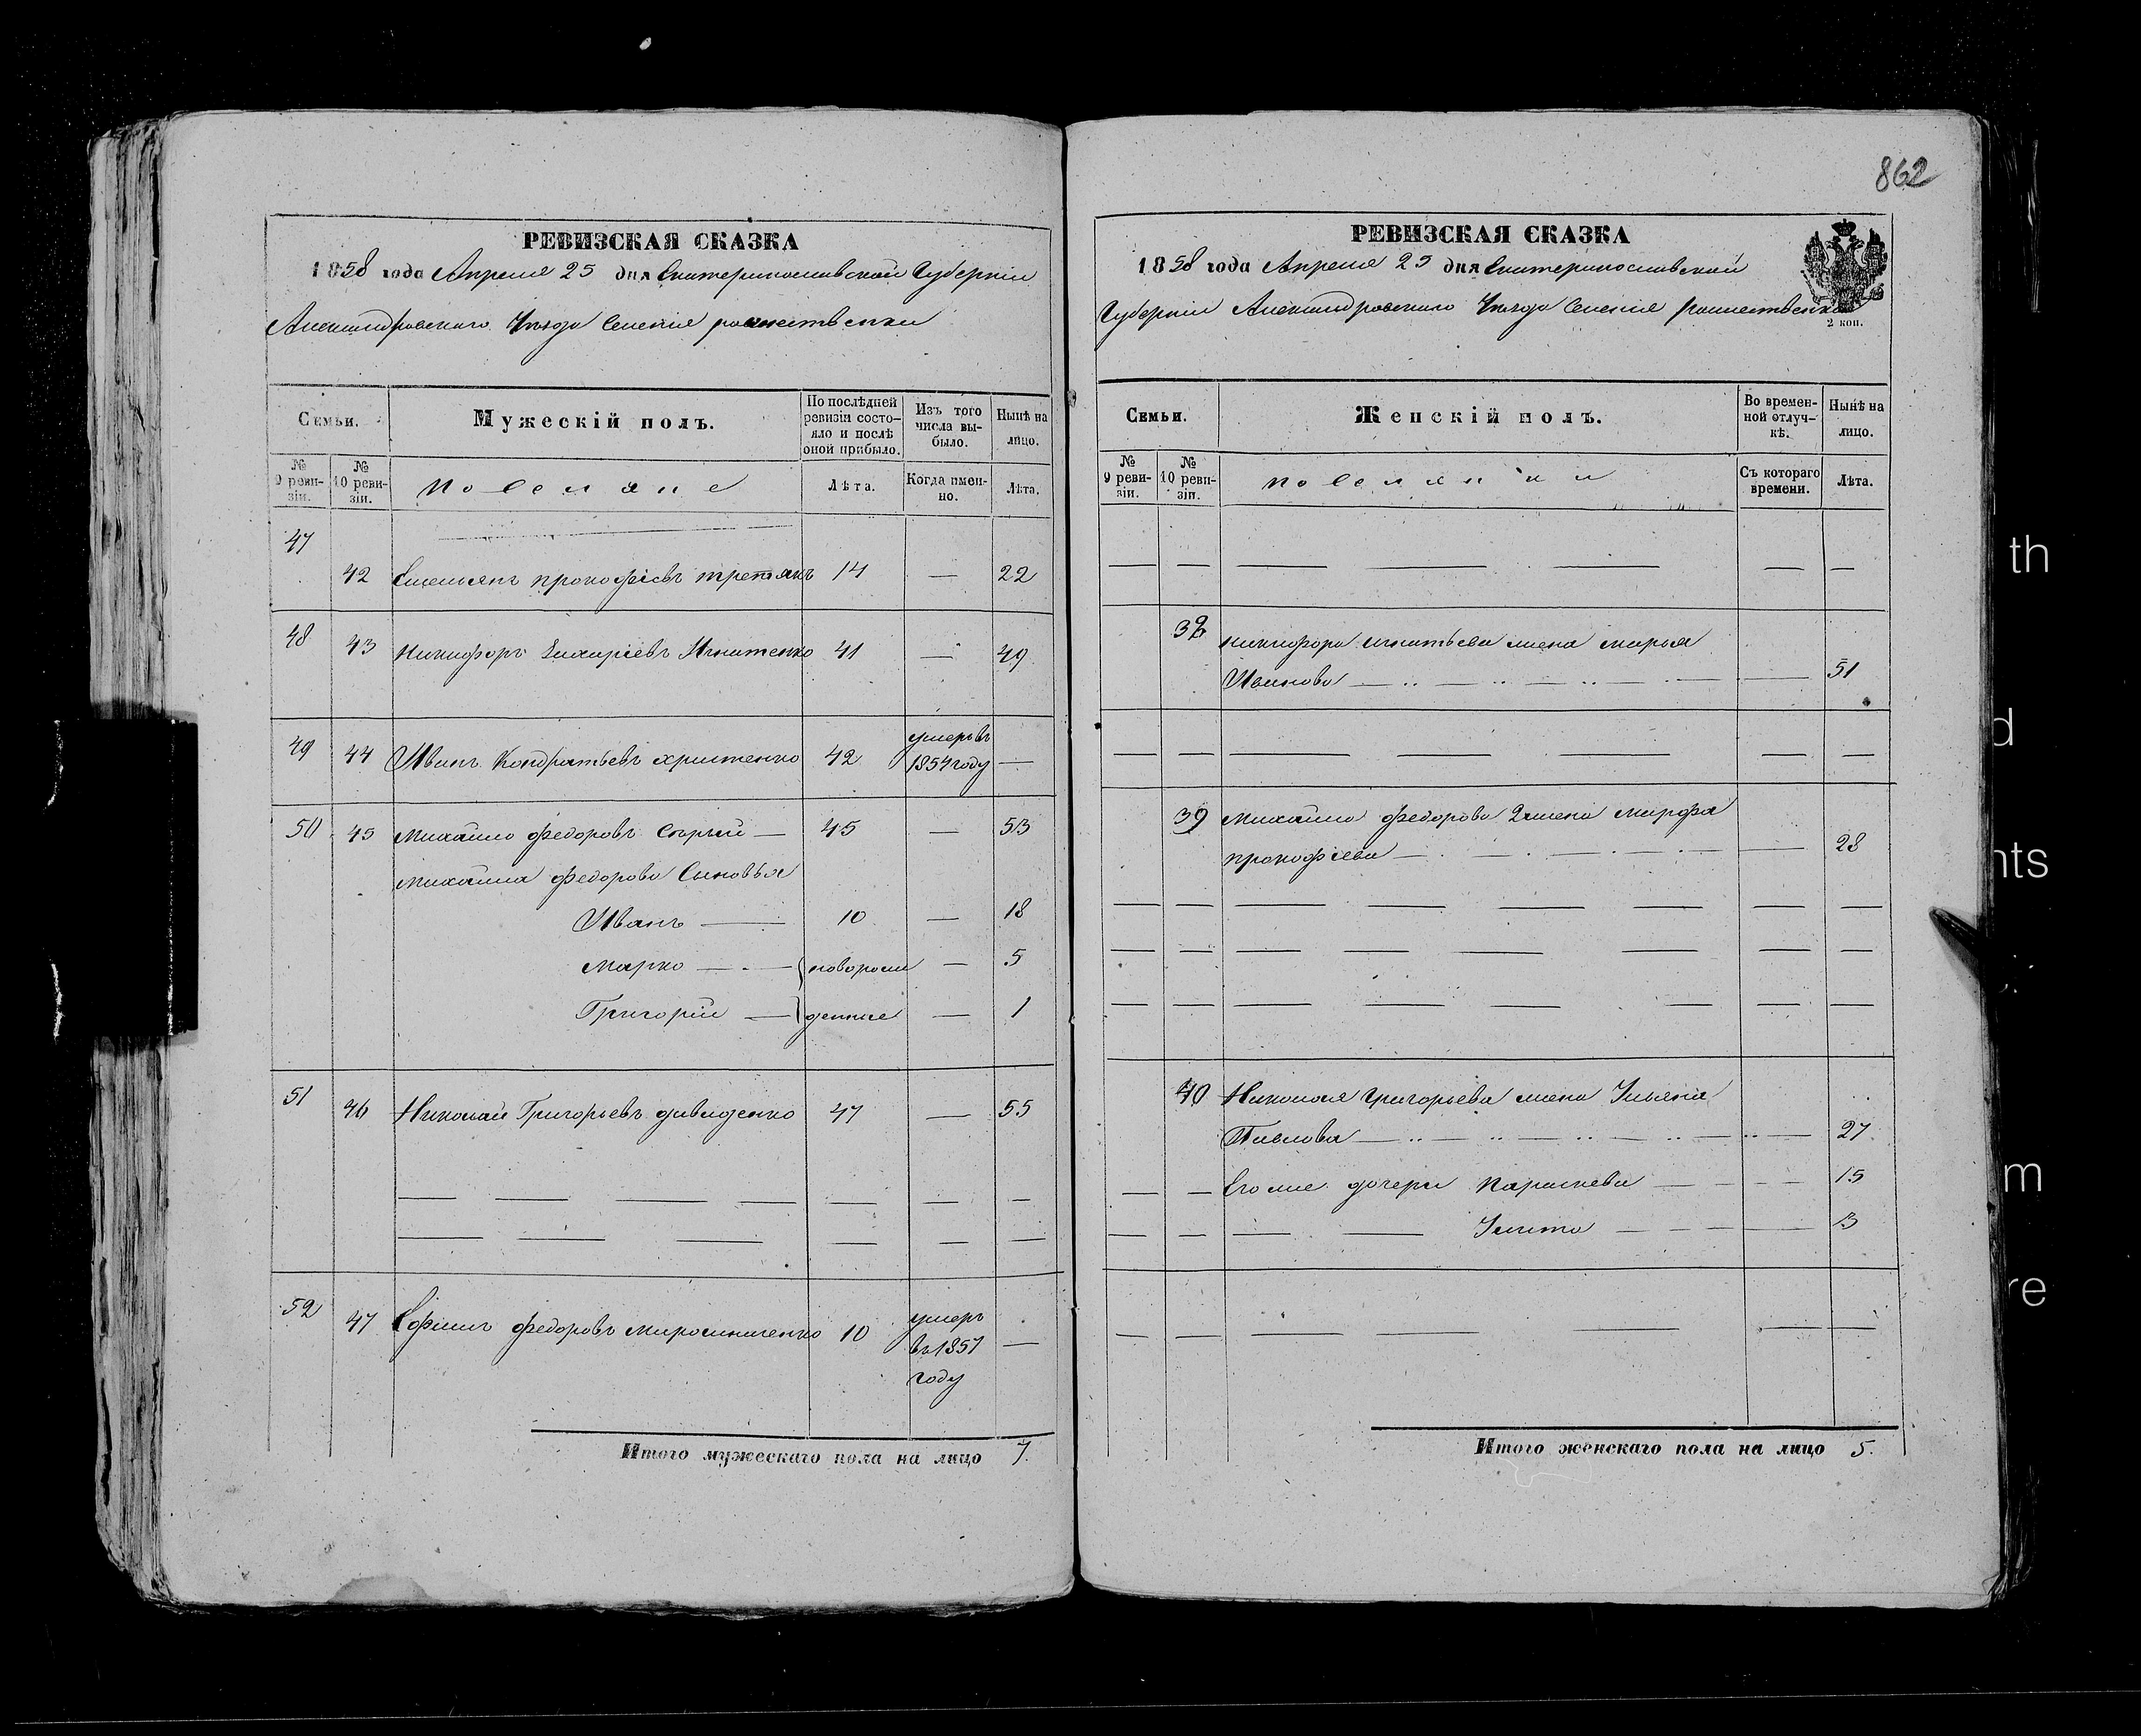 862
РЕВИЗСКАЯ СКАЗКА
1858 года Апреля 25 дня Екатеринославской Губерніи
Александровского Уезда Селенія рождественки
Семьи.
Мужескій полъ.
По послѣдней ревизіи состо-
яло и послѣ оной прибыло.
Изъ того числа вы-
было.
Нынѣ на лицо.
№ 9 реви-
зіи.
№ 10 реви-
зіи.
Поселяне
Лѣта.
Когда имен-
но.
Лѣта.
47
42 Емельянъ прокофіевъ третякъ 14 — 22
48 43 Никифоръ Захаріевъ Игнатенко 41 — 49
49 44 Иванъ Кондратьевъ христенко 42 умеръ въ
1854 году —
50 45 Михайло федоровъ Сѣрый — 45 — 53
Михайла федорова Сыновья
Иванъ — 10 — 18
Марко — новорож — 5
Григорій — денные — 1
51 46 Николай Григорьевъ давиденко 47 — 55
52 47 Ефимъ федоровъ мирошниченко 10 умеръ
въ 1857 —
году
Итого мужескаго пола на лицо 7.
РЕВИЗСКАЯ СКАЗКА
1858 года Апреля 25 дня Екатеринославской
Губерніи Александровского Уезда Селенія рождественки
2 коп.
Семьи.
Женскій полъ.
Во времен-
ной отлуч-
кѣ.
Нынѣ на лицо.
№ 9 реви-
зіи.
№ 10 реви-
зіи.
Поселянки
Съ котораго времени.
Лѣта.
38 никифора игнатьева жена марья
Иванова — 51
39 Михайла федорова 2 жена марфа
прокофіева — 28
40 Николая григорьева жена Ульяна
Павлова — 27
Его же дочери Параскева — 15
Улита — 13
Итого женскаго пола на лицо 5.
th
d
nts
m
re